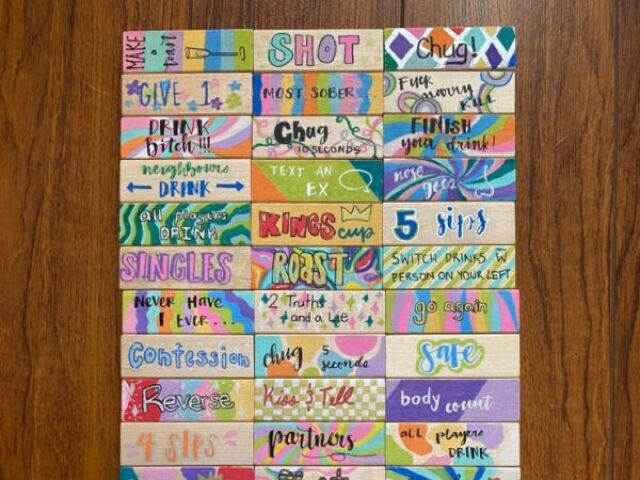 MAKE a toast
SHOT
Chug!
GIVE 1
MOST SOBER...
FUCK marry KILL
DRINK
bitch!!!
Chug
10 SECONDS
FINISH
your drink!
neighbours
DRINK
TEXT AN
EX
nose
goes
all players
DRINK
KINGS cup
5 sips
SINGLES
ROAST
SWITCH DRINKS W
PERSON ON YOUR LEFT
NEVER HAVE
I EVER...
2 Truths
and a Lie
go again
Confession
chug 5
seconds
Safe
Reverse
Kiss & Tell
body count
4 SIPS
partners
ALL players
DRINK